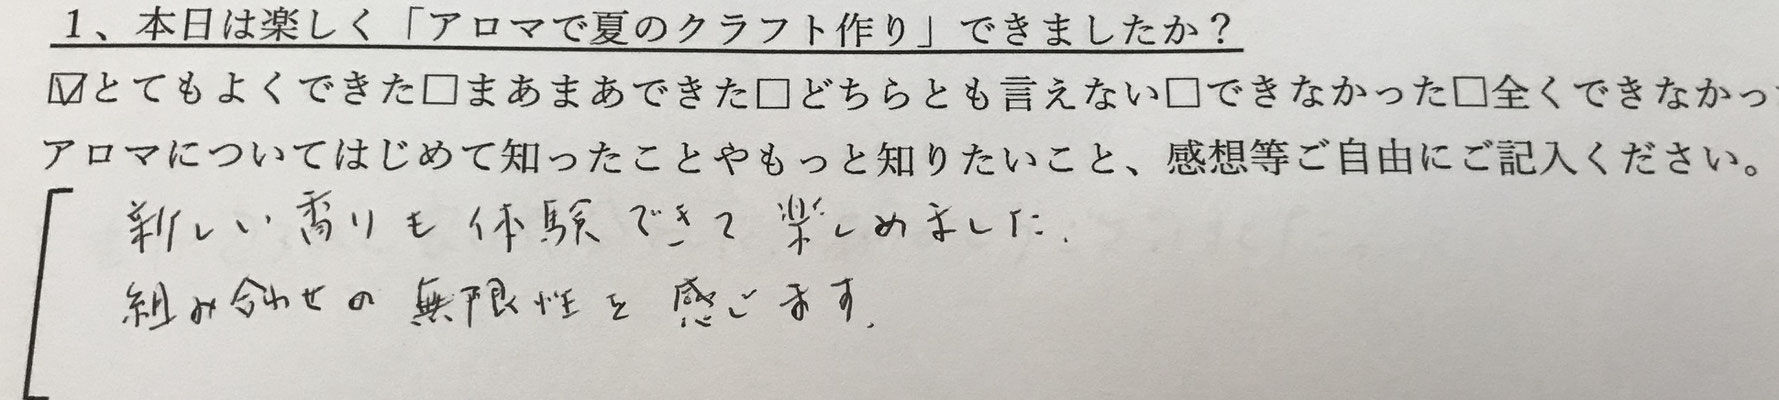 1、本日は楽しく「アロマで夏のクラフト作り」できましたか？
☑とてもよくできた□まあまあできた□どちらとも言えない□できなかった□全くできなかっ
アロマについてはじめて知ったことやもっと知りたいこと、感想等ご自由にご記入ください。
新しい香りも体験できて楽しめました.
組み合わせの無限性を感じます.